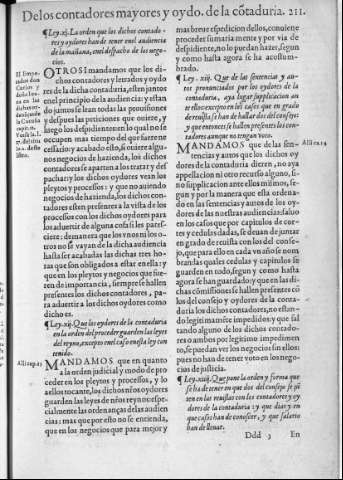 De los contadores mayores y oydo. de la cōtaduria. 211.
¶Ley.xj. La orden que los dichos contado-
res y oydores han de tener enel audiencia
de la mañana, en el despacho de los nego-
cios.
OTROSI mandamos que los di-
chos contadores y letrados y oydo
res de la dicha contaduria, esten juntos
en el principio de la audiencia: y estan
do juntos se lean todas las peticiones
y despues las peticiones que ouiere, y
luego los depedimientos: lo qual no se
occupen mas tiempo del que fuere ne
cessario: y acabado esto, si ouiere algu-
nos negocios de hazienda, los dichos
contadores se aparten a los tratar y des
pachar: y los dichos oydores vean los
pleytos y processos: y que no auiendo
negocios de hazienda, los dichos con-
tadores esten presentes a la vista de los
processos con los dichos oydores para
los aduertir de alguna cosa si les pares-
ciere: de manera que los vnos ni los o-
tros no se vayan de la dicha audiencia
hasta ser acabadas las dichas tres ho-
ras que son obligados a estar en ella: y
que en los pleytos y negocios que fue-
ren de importancia, siempre se hallen
presentes los dichos contadores, pa-
ra aduertir a los dichos oydores como
dicho es.
¶Ley.xij. Que los oydores de la contaduria
en la orden del proceder guarden las leyes
del reyno, excepto enel caso en esta ley con
tenido.
Alli cap.13
MANDAMOS que en quanto
a la orden judicial y modo de pro
ceder en los pleytos y processos, y lo
a ellos tocante, los dichos nros oydores
guarden las leyes de nros reynos: espe-
cialmente las ordenanças de las audien
cias: mas que por esto no se entienda,
que en los negocios que para mejor y
mas breue espedicion dellos, conuiene
proceder sumariamente y por via de
expidiente, no lo puedan hazer, segun
y como hasta agora se ha acostum-
brado.
¶Ley. xiij. Que de las sentencias y au-
tos pronunciados por los oydores de la
contaduria, aya lugar supplicacion an
te ellos: excepto en los casos que en grado
de reuista se han de hallar dos del consejo:
y que entonces se hallen presentes los con-
tadores aunque no tengan voto.
MANDAMOS que de las sen-
Alli ca.14
tencias y autos que los dichos oy
dores de la contaduria dieren, no aya
appelacion ni otro recurso alguno, si-
no supplicacion ante ellos mismos, se-
gun y por la manera que esta ordena-
do en las sentencias y autos de los oy-
dores de las nuestras audiencias: saluo
en los casos que por capitulos de cor-
tes y cedulas dadas, se deuan de juntar
en grado de reuista con los del conse-
jo, que para ello en cada vn año se nom
bran: las quales cedulas y capitulos se
guarden en todo, segun y como hasta
agora se han guardado: y que en las di-
chas comissiones se hallen presentes cō
los del consejo y oydores de la conta-
duria los dichos contadores, no estan-
do legitimamēte impedidos: y que fal
tando alguno de los dichos contado-
res o ambos por legitimo impedimen
to, se puedan ver los negocios sin ellos:
pues no han de tener voto en los nego-
cios de justicia.
¶Ley.xiiij. Que pone la orden y forma que
se ha de tener en que dos del consejo se jū
ten en las reuistas con los contadores y oy
dores de la contaduria: y que dias y en
que casos han de conoscer, y que salario
han de lleuar.
Ddd 3
En